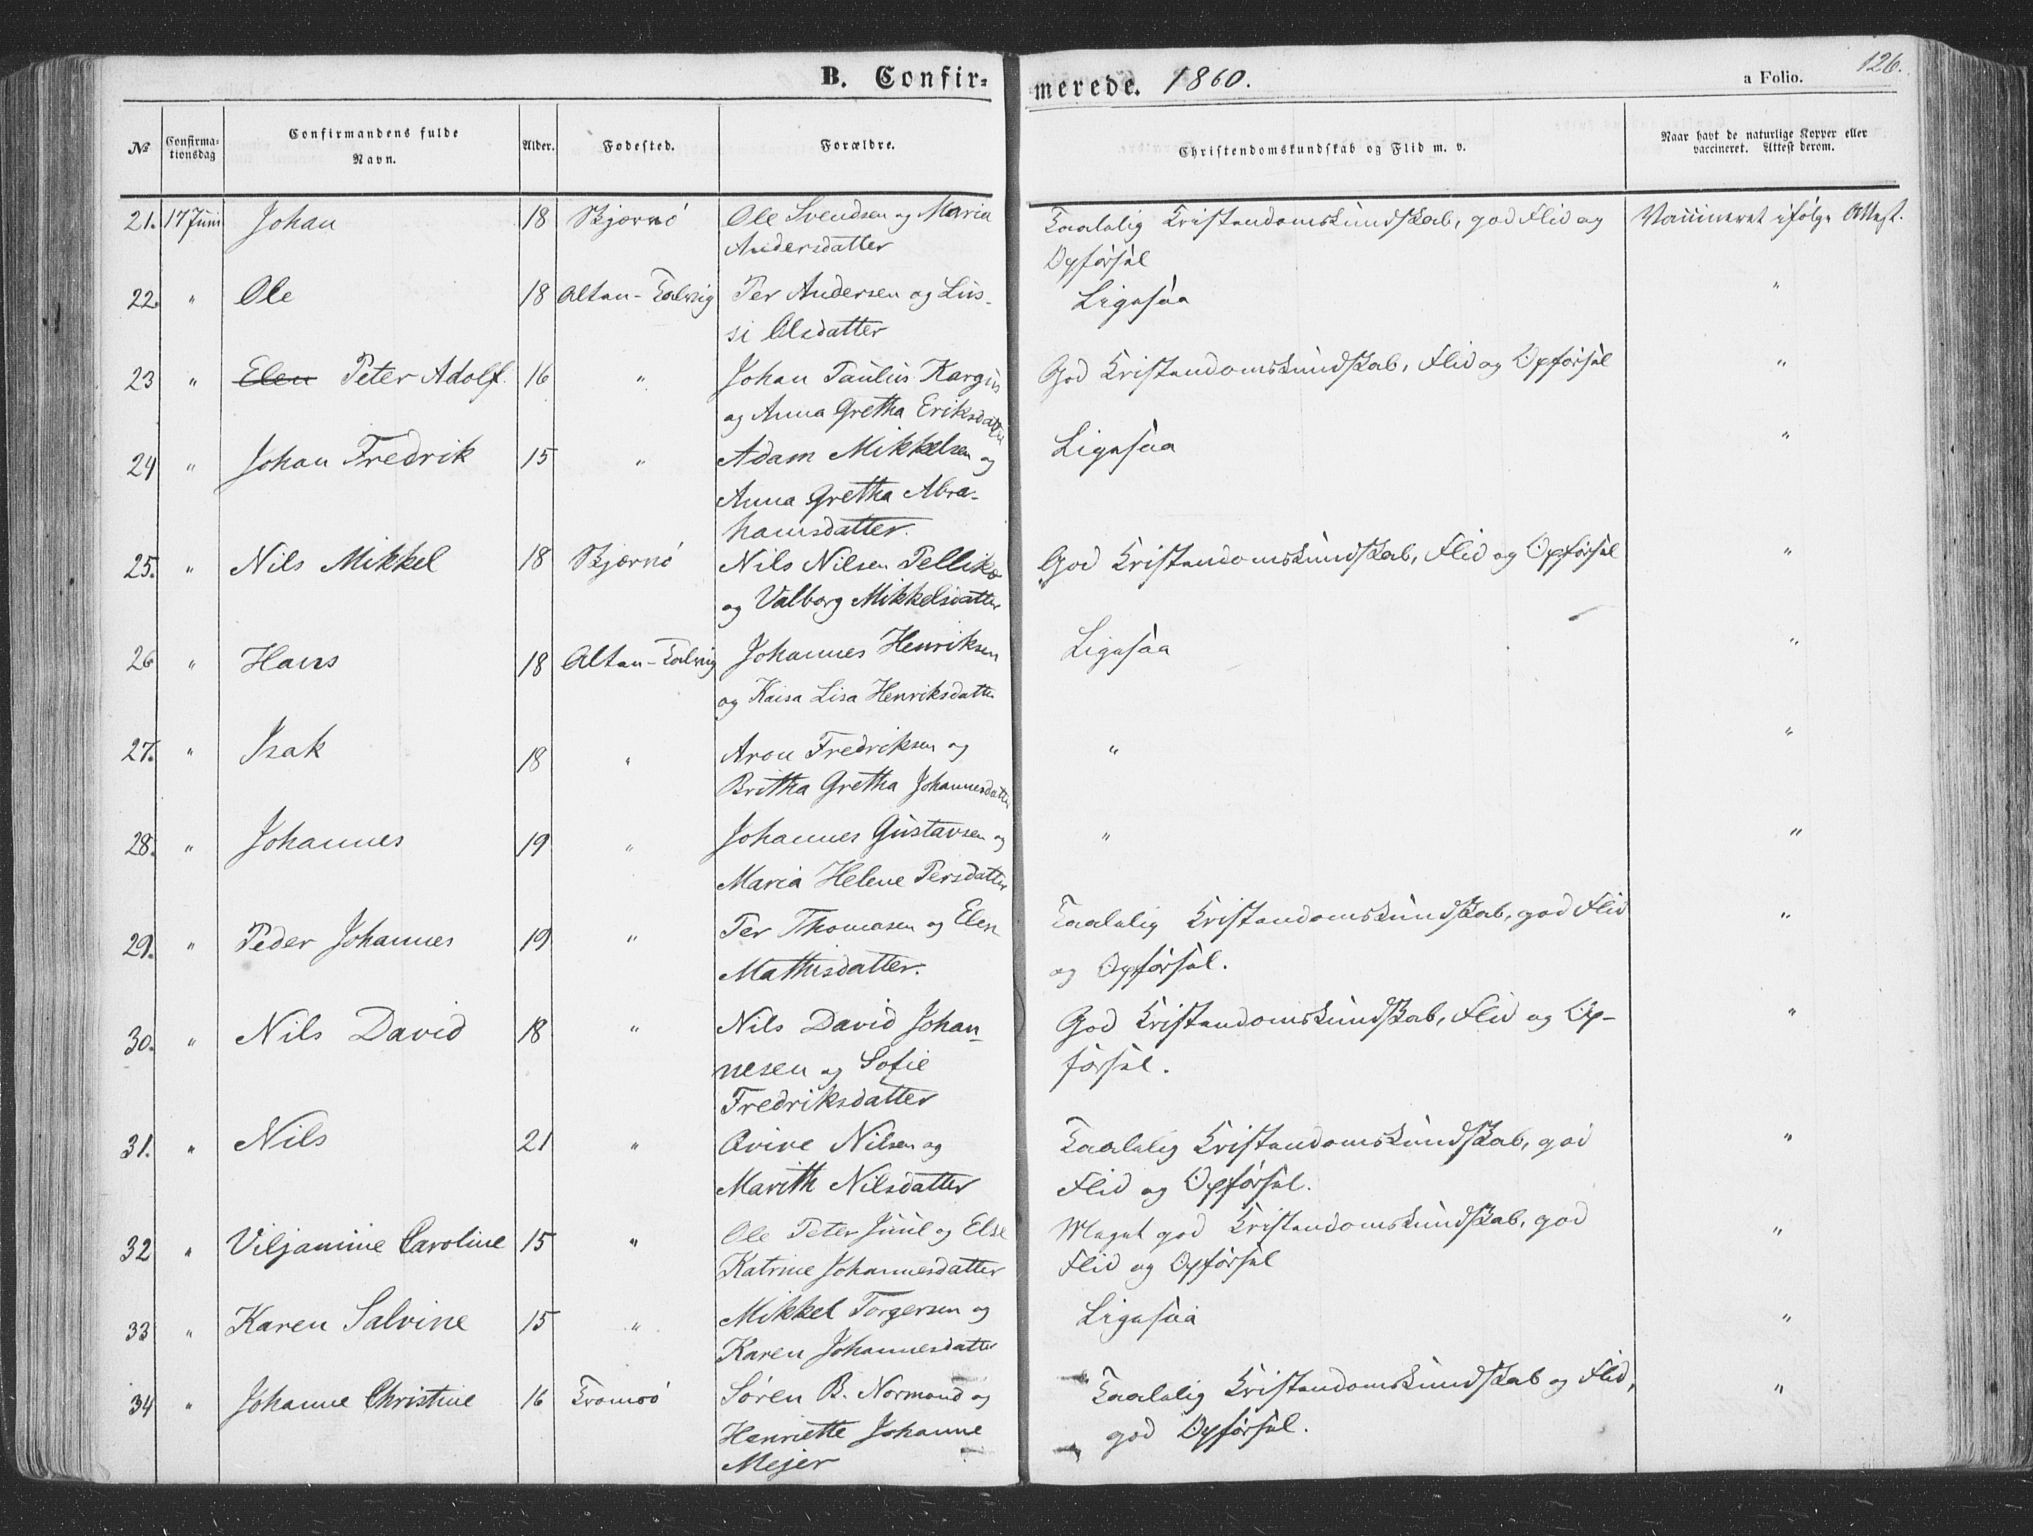 B. Confir-
merede. 1860. a Folio. 126.
№ Confirma-
tionsdag Confirmandens fulde
Navn. Alder. Fødested. Forældre. Christendomskundskab og Flid m. v. Naar havt de naturlige Kopper eller
vaccineret. Attest derom.
21. 17 Juni Johan 18 Bjørnö Ole Svendsen og Maria Taalelig Kristendomskundskab, god Flid og Vaccineret ifølge Attest.
Andersdatter Opförsel
22. " Ole 18 Alten-Talvig Per Andersen og Lus- Ligesaa "
si Olsdatter
23 " Elen Peter Adolf. 16 " Johan Paulus Kargus God Kristendomskundskab, Flid og Opförsel "
og Anna Gretha Eriksdatter
24 " Johan Fredrik 15 " Adam Mikkelsen og Ligesaa "
Anna Gretha Abra-
hamsdatter.
25. " Nils Mikkel 18 Bjørnö Nils Nilsen Pelliko God Kristendomskundskab, Flid og Opförsel "
og Valborg Mikkelsdatter
26 " Hans 18 Alten-Talvig Johannes Henriksen Ligesaa "
og Kaisa Lisa Henriksdatter
27. " Isak 18 " Aron Fredriksen og " "
Britha Gretha Johannesdatter
28. " Johannes 19 " Johannes Gustavsen og " "
Maria Helene Persdatter
29. " Peder Johannes 19 " Per Thomasen og Elen Taalelig Kristendomskundskab, god Flid "
Mathisdatter. og Opförsel.
30. " Nils David 18 " Nils David Johan- God Kristendomskundskab, Flid og Op- "
nesen og Sofie försel.
Fredriksdatter
31. " Nils 21 " Nilsen og Taalelig Kristendomskundskab, god "
Marith Nilsdatter Flid og Opförsel.
32 " Viljamine Caroline 15 " Ole Peter Juul og Else Meget god Kristendomskundskab, god "
Katrine Johannesdatter Flid og Opförsel
33 " Karen Salvine 15 " Mikkel Torgersen og Ligesaa "
Karen Johannesdatter
34 " Johanne Christine 16 Tromsö Sören B. Normand og Taalelig Kristendomskundskab og Flid, "
Henriette Johanne god Opförsel.
Mejer